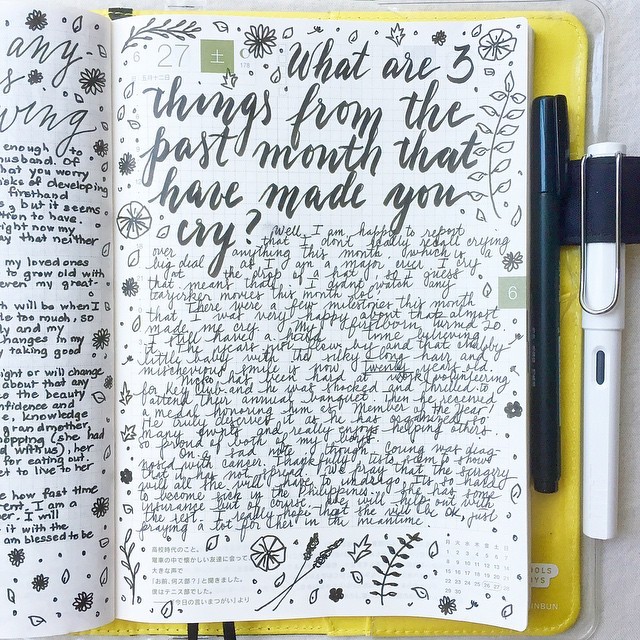 any-
s
wing
enough to
husband. Of
that you worry
risks of developing
firsthand
, but it seems
to have.
right now my
that neither
my loved ones
to grow old with
even my great-
th will be when I
too much, so
ly and my
changes in my
taking good
ight or will change
about that any
to the beauty
nfidence and
e. knowledge
grandmother,
hopping (she had
with us), her
for eating out.
et to live to her
how fast time
rent. I am a
er. I will
it with the
am blessed to be
6 27 土
178
五月十二日
What are 3
things from the
past month that
have made you
cry?
Well, I am happy to report
that I don't really recall crying
over anything this month (which is a
big deal as I am a major, ever cry
at the drop of a hat), so I guess
that means that I didn't watch any
tearjerker movies this month lol.
There were a few milestones this month
that I was very happy about that almost
made me cry. My firstborn turned 20.
I still have a hard time believing
it. The years just flew by and that chubby
little baby with the silky long hair and
mischievous smile is now twenty years old.
has been hard at work volunteering
for Key Club and he was shocked and thrilled to
attend their annual banquet when he received
a medal honoring him as Member of the Year!
He truly deserved it as he has organized so
many events and really enjoys helping others.
So proud of both of my boys.
On a sad note though, was diag-
nosed with cancer. Thankfully, tests seem to show
that it has not spread. We pray that the surgery
will be all she will have to undergo. It's so hard
to become sick in the Philippines. She has some
insurance but of course, we will help out with
the rest. I really hope that she will be ok, just
praying a lot for her in the meantime.
6
高校時代のこと。
電車の中で懐かしい友達に会って、
大きな声で
「お前、何大部？」と聞きました。
彼はテニス部でした。
『今日の言いまつがい』より
月 火 水 木 金 土 日